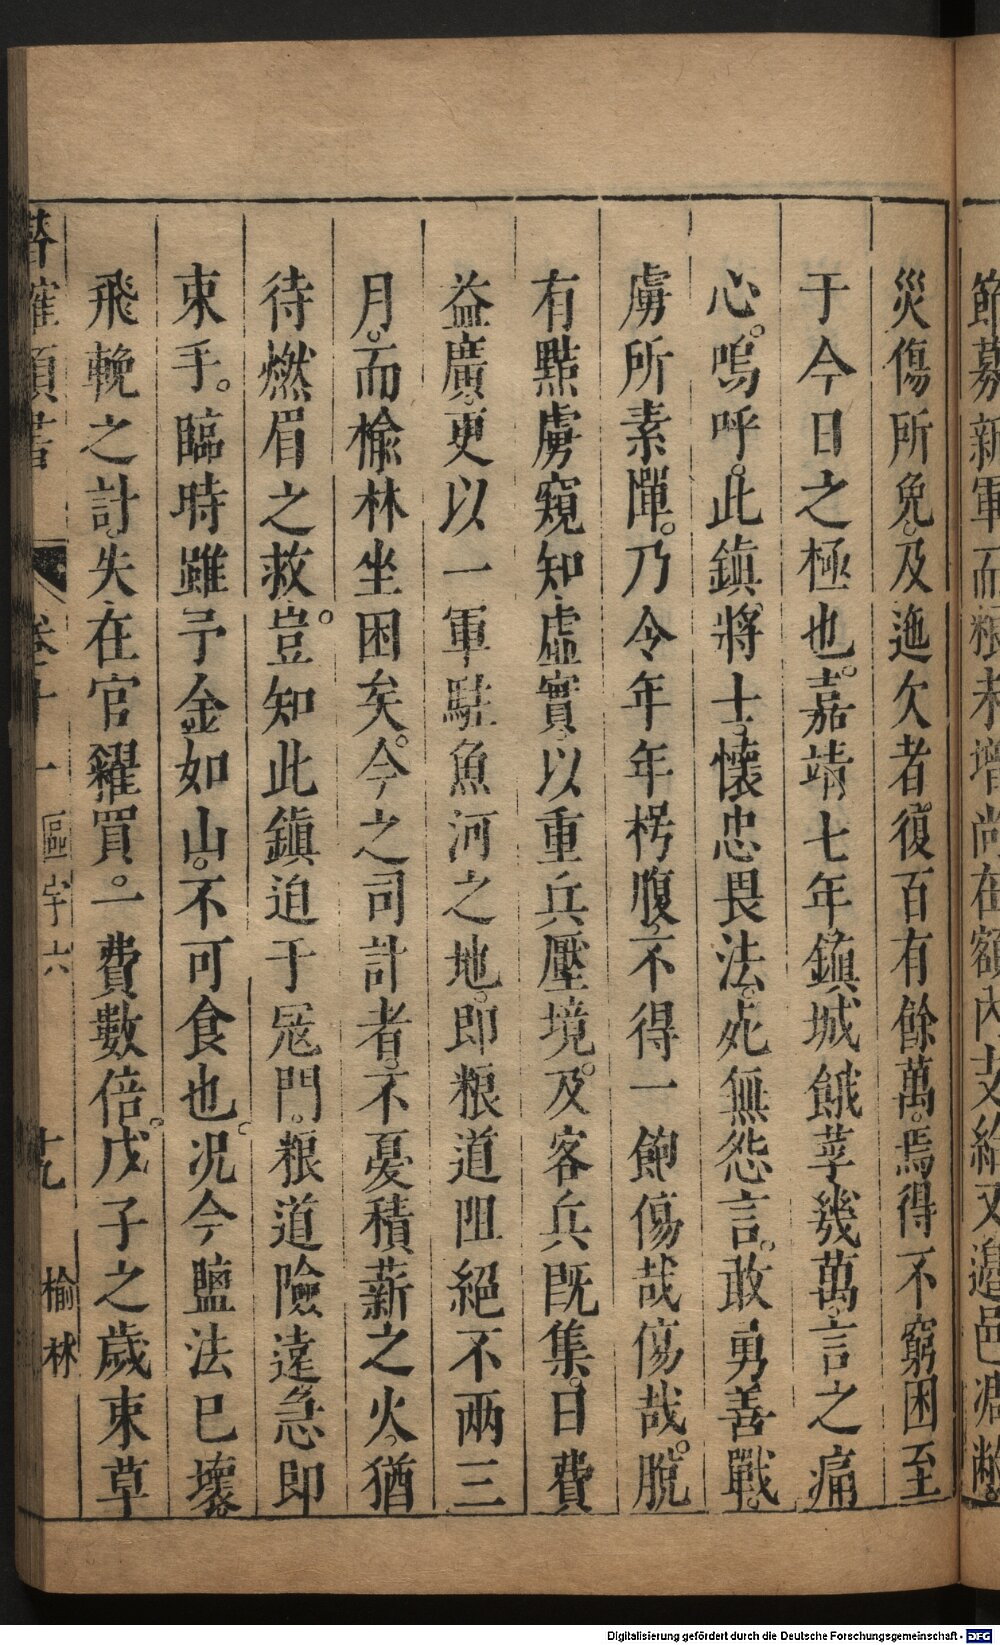 節募新軍而粮未增尚在額內支給又邊邑凋敝
災傷所免。及迤欠者復百有餘萬。焉得不窮困至
于今日之極也。嘉靖七年鎮城餓莩幾萬言之痛
心。嗚呼。此鎮將士。懷忠畏法。死無怨言。敢勇善戰。
虜所素憚。乃令年年枵腹。不得一飽傷哉傷哉。脫
有黠虜窺知虛實。以重兵壓境。及客兵既集。日費
益廣。更以一軍駐魚河之地。即粮道阻絕不兩三
月。而榆林坐困矣。今之司計者。不憂積薪之火。猶
待燃眉之救。豈知此鎮迫于冦門。粮道險遠急即
束手。臨時雖予金如山。不可食也。况今鹽法已壞。
飛輓之計。失在官糴買。一費數倍。戊子之歲束草
潛確類書 卷十一 區宇六 十九 榆林
Digitalisierung gefördert durch die Deutsche Forschungsgemeinschaft - DFG